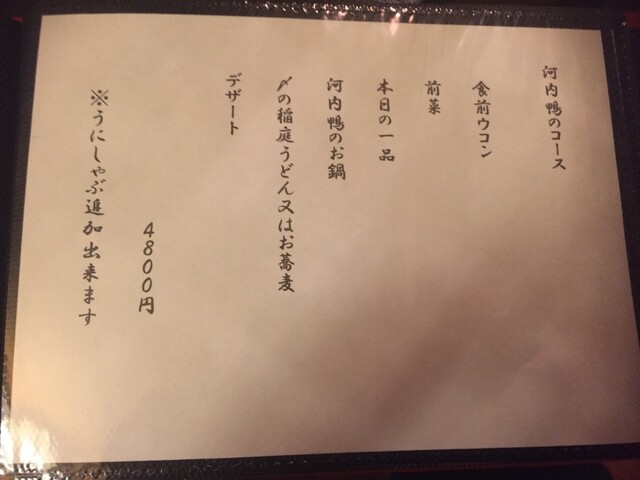 河内鴨のコース
食前ウコン
前菜
本日の一品
河内鴨のお鍋
〆の稲庭うどん又はお蕎麦
デザート
4800円
※うにしゃぶ追加出来ます